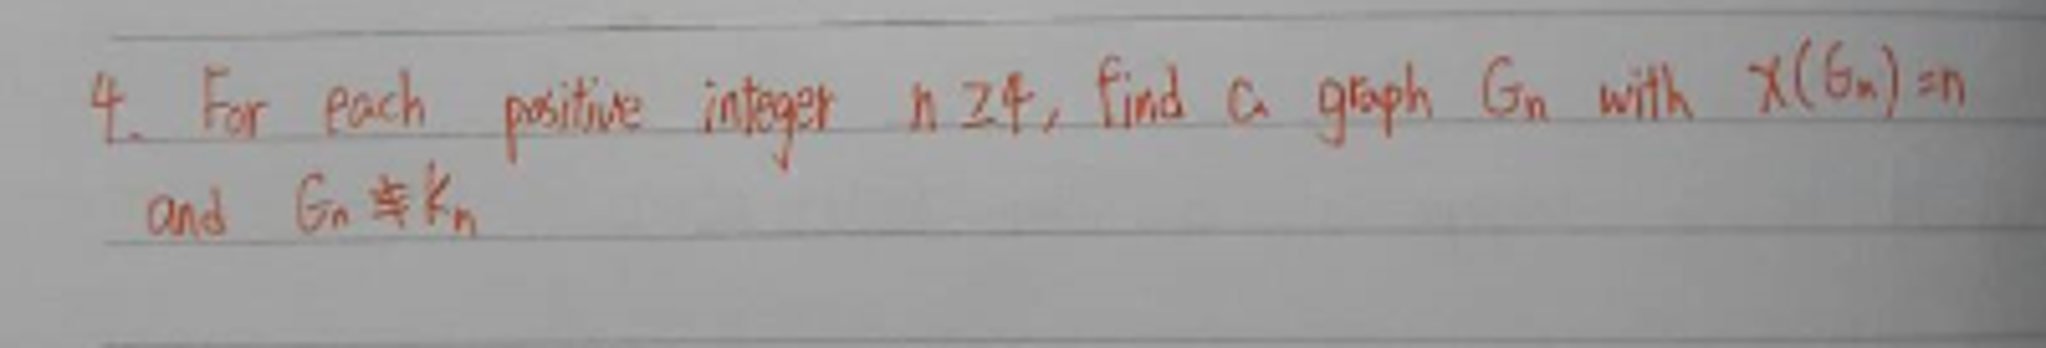 4. For each positive integer n ≥ 4, find a graph Gn with χ(Gn) = n
and Gn ≇ Kn